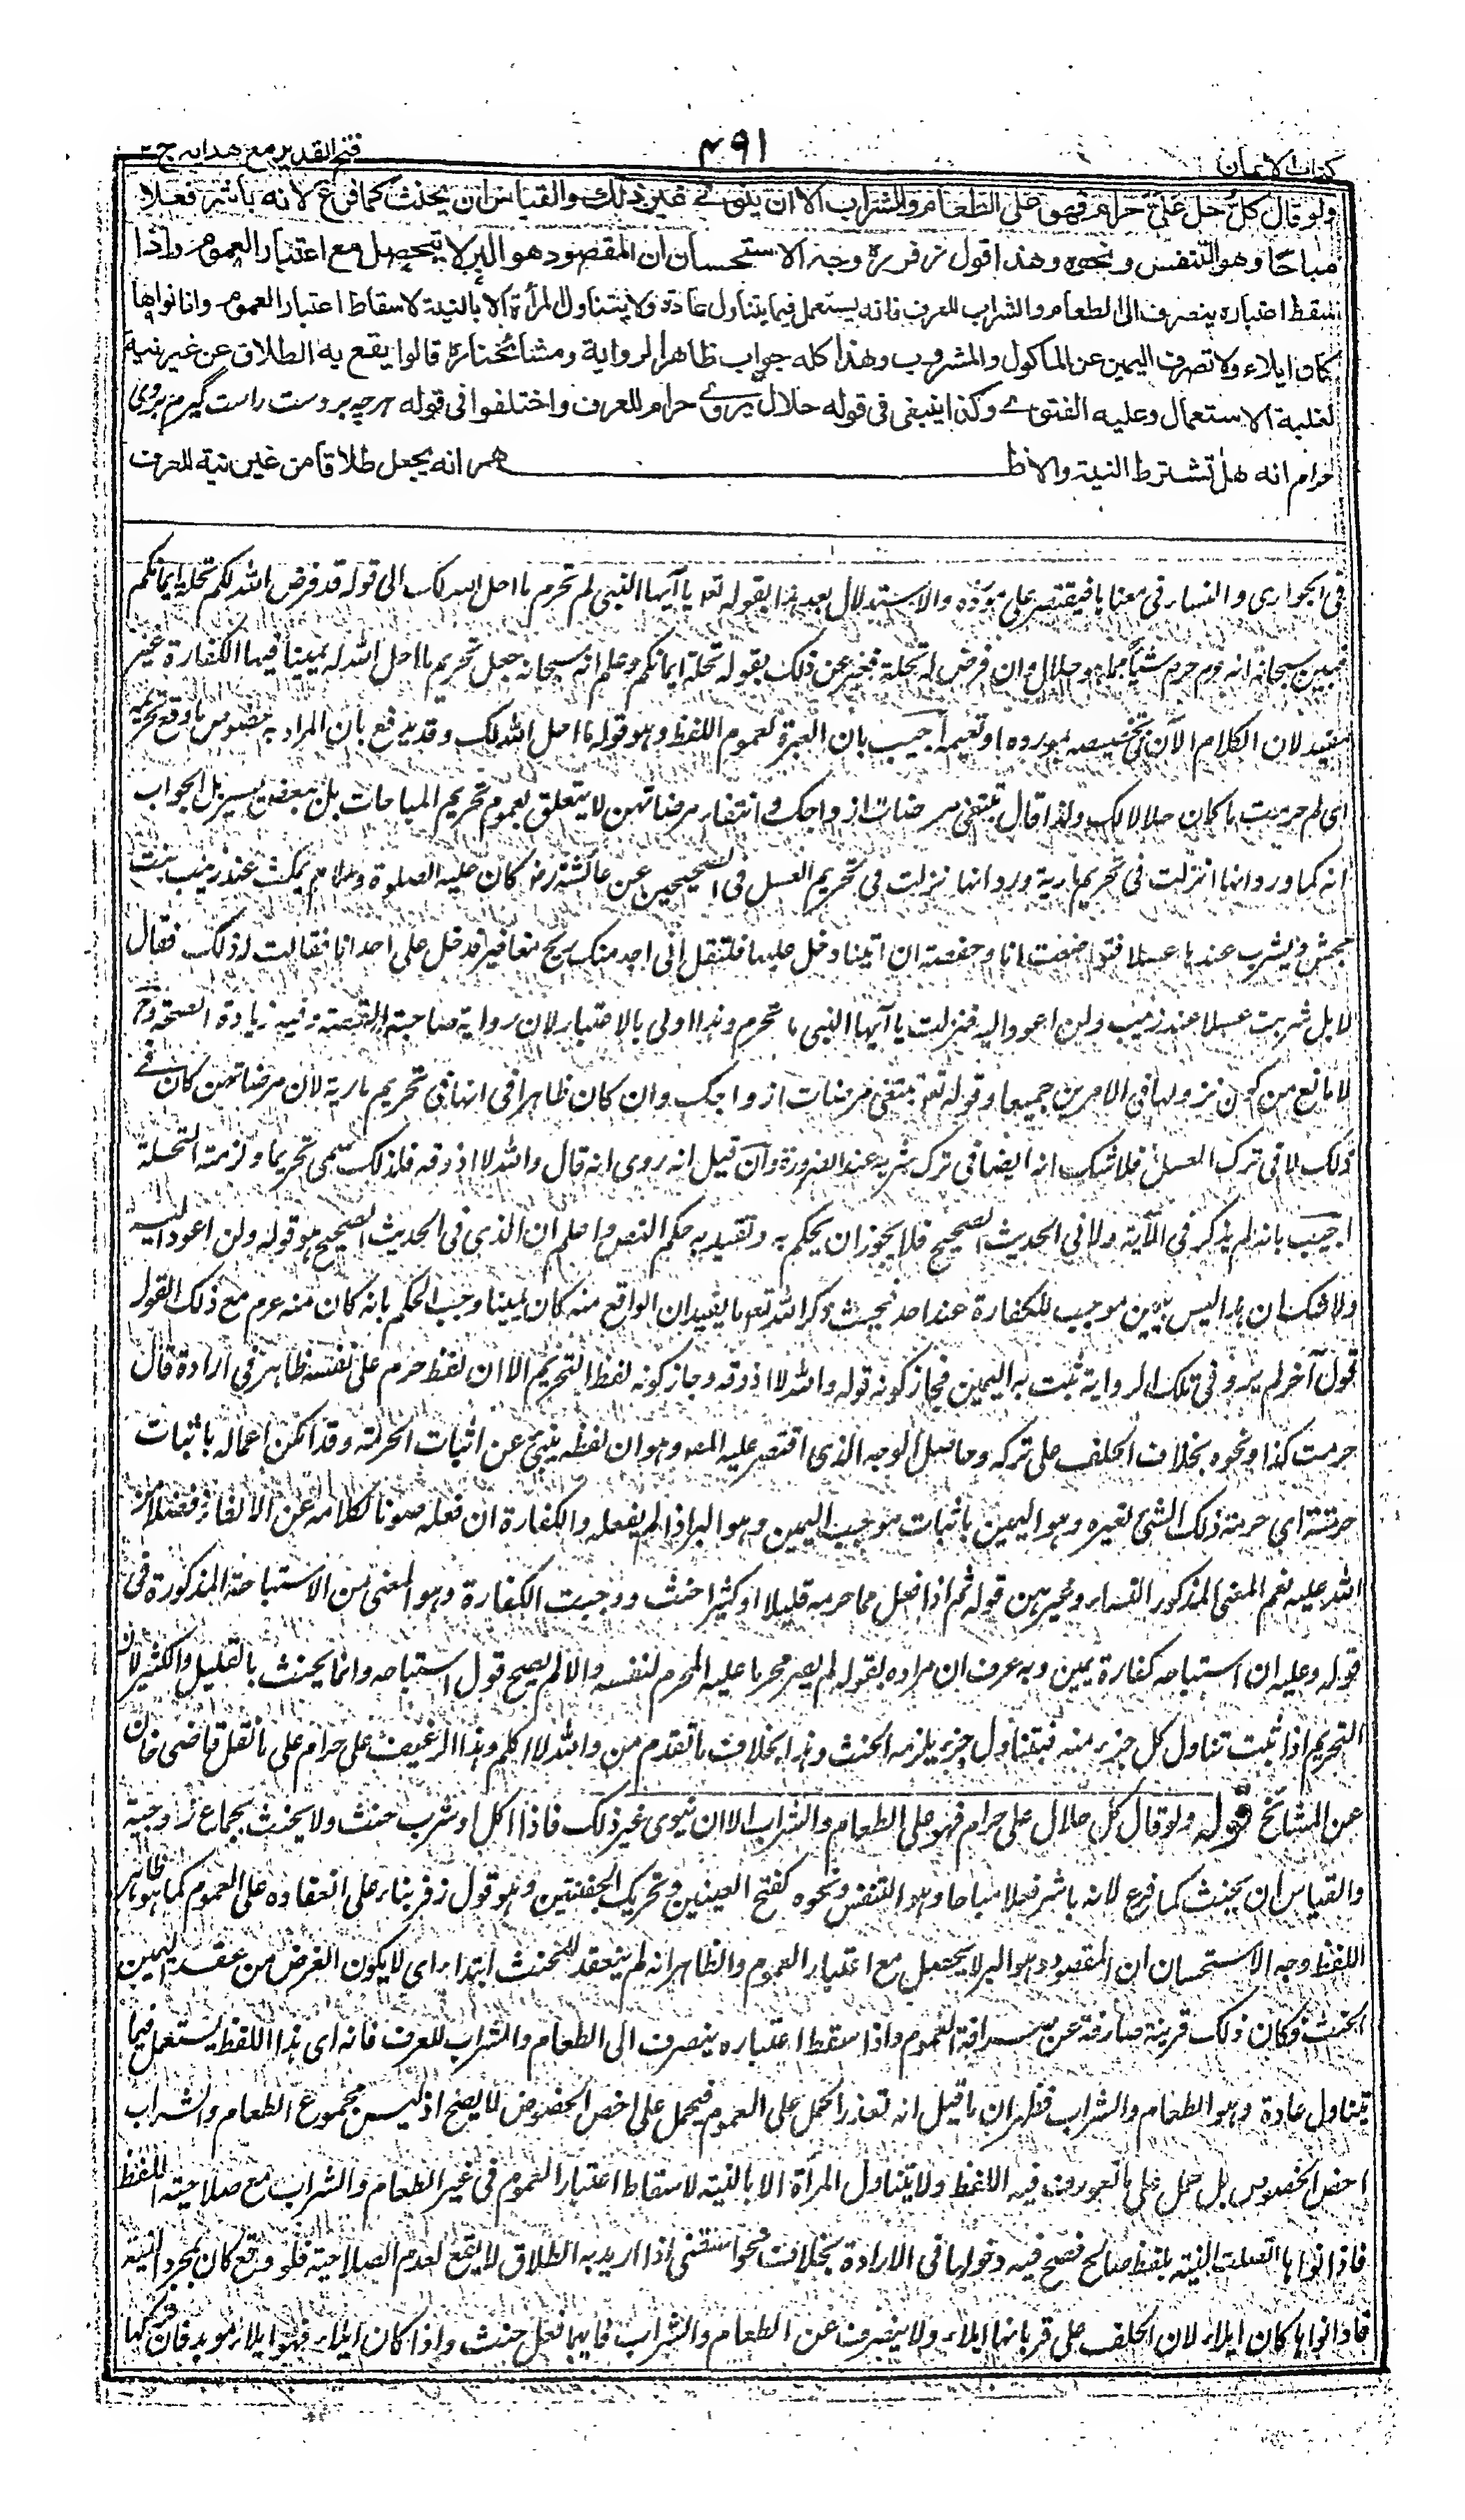 كتاب الايمان
٤٩١
فتح القدير مع هدايه ج ٢
ولو قال كل حل علي حرام فهو على الطعام والشراب الا ان ينوي غير ذلك والقياس ان يحنث كما فرغ لانه باشر فعلا
مباحا وهو التنفس ونحوه وهذا قول زفر ره وجه الاستحسان ان المقصود هو البر لا يتحصل مع اعتبار العموم واذا
سقط اعتباره ينصرف الى الطعام والشراب للعرف فانه يستعمل فيما يتناول عادة ولا يتناول المرأة الا بالنية لاسقاط اعتبار العموم واذا نواها
كان ايلاء ولا تصرف اليمين عن المأكول والمشروب وهذا كله جواب ظاهر الرواية ومشائخنا ره قالوا يقع به الطلاق عن غير نية
لغلبة الاستعمال وعليه الفتوى وكذا ينبغي في قوله حلال بروے حرام للعرف واختلفوا في قوله هرچه بر دست راست گيرم بروى
حرام انه هل تشترط النية والاظهر انه يجعل طلاقا من غير نية للعرف
في الجواري والنساء في معناها فيقتصر على مورده والاستدلال بعد هذا بقوله تعا يا ايها النبي لم تحرم ما احل الله لك الى قوله قد فرض الله لكم تحلة ايمانكم
فبين سبحانه انه حرم شيئا مما هو حلال وان فرض له تحلة فعبر عن ذلك بقوله تحلة ايمانكم وعلم انه سبحانه جعل تحريم ما احل الله له يمينا فيها الكفارة غير
مفيد لان الكلام الآن في تخصيصه بمورده او تعميمه اجيب بان العبرة لعموم اللفظ وهو قوله ما احل الله لك وقد يدفع بان المراد به خصوص ما وقع تحريمه
اي لم حرمت ما كان حلالا لك ولذا قال تبتغي مرضات ازواجك وابتغاء مرضاتهن لا يتعلق بعموم تحريم المباحات بل ببعض يسير بل الجواب
انه كما ورد انها انزلت في تحريم مارية ورد انها نزلت في تحريم العسل في الصحيحين عن عائشة رض كان عليه الصلوة والسلام يمكث عند زينب بنت
جحش ويشرب عندها عسلا فتواضعت انا وحفصة ان ايتنا دخل عليها فلتقل انى اجد منك ريح مغافير فدخل على احدانا فقالت له ذلك فقال
لا بل شربت عسلا عند زينب ولن اعود اليه فنزلت يا ايها النبي لم تحرم وهذا اولى بالاعتبار لان رواية صاحبة القصة وفيه زيادة الصحة وح
لا مانع من كون نزولها في الامرين جميعا وقوله تعا تبتغي مرضات ازواجك وان كان ظاهرا في انها في تحريم مارية لان مرضاتهن كان في
ذلك لا في ترك العسل فلا شك انه ايضا في ترك شربه عند الضرورة وان قيل انه روى انه قال والله لا اذوقه فلذلك سمى تحريما ولزمته التحلة
اجيب بانه لم يذكر في الآية ولا في الحديث الصحيح فلا يجوز ان يحكم به وتقيد به حكم النص واعلم ان الذي في الحديث الصحيح هو قوله ولن اعود اليه
ولا شك ان هذا ليس بيمين موجب للكفارة عند احد فحيث ذكر الله تعا ما يفيد ان الواقع منه كان يمينا وجب الحكم بانه كان منه عرم مع ذلك القول
قول آخر لم يرو في تلك الرواية ثبت به اليمين فجاز كونه قوله والله لا اذوقه وجاز كونه لفظ التحريم الا ان لفظ حرم على نفسه ظاهر في ارادة قال
حرمت كذا ونحوه بخلاف الحلف على تركه وحاصل الوجه الذى اقتصر عليه المصـ وهو ان لفظه ينبئ عن اثبات الحرمة وقد امكن اعماله باثبات
حرمته اي حرمة ذلك الشئ لغيره وهو اليمين باثبات موجب اليمين وهو البر اذا لم يفعله والكفارة ان فعله صونا لكلامه عن الالغاء فضلا من
الله عليه نعم المعنى المذكور النساء وغيرهن قوله ثم اذا فعل مما حرمه قليلا او كثيرا حنث ووجبت الكفارة وهو المعنى من الاستباحة المذكورة في
قوله وعليه ان استباحه كفارة يمين وبه عرف ان مراده بقوله لم يصر محرما عليه المحرم لنفسه والا لم يصح قول استباحه وانما يحنث بالقليل والكثير لان
التحريم اذا ثبت تناول كل جزء منه فبتناول جزء يلزمه الحنث وهذا بخلاف ما تقدم من والله لا اكلم وهذا الرغيف على حرام على ما نقل قاضى خان
عن المشائخ قوله ولو قال كل حلال على حرام فهو على الطعام والشراب الا ان ينوى غير ذلك فاذا اكل او شرب حنث ولا يحنث بجماع زوجته
والقياس ان يحنث كما فرغ لانه باشر فعلا مباحا وهو التنفس ونحوه كفتح العينين وتحريك الجفنتين وهو قول زفر بناء على انعقاده على العموم كما هو ظاهر
اللفظ وجه الاستحسان ان المقصود وهو البر لا يحصل مع اعتبار العموم والظاهر انه لم ينعقد للحنث ابتداء اى لا يكون الغرض من عقد اليمين
الحنث فكان ذلك قرينة صارفة عن صرافة العموم واذا سقط اعتباره ينصرف الى الطعام والشراب للعرف فانه اى هذا اللفظ يستعمل فيما
يتناول عادة وهو الطعام والشراب فظهر ان ما قيل انه تعذر الحمل على العموم فيحمل على اخص الخصوص لما يصح اذ ليس مجموع الطعام والشراب
اخص الخصوص بل حمل على ما تعورف فيه اللفظ ولا يتناول المرأة الا بالنية لاسقاط اعتبار العموم في غير الطعام والشراب مع صلاحية اللفظ
فاذا نواها اتصلت النية بلفظ صالح فصح فيه دخولها في الارادة بخلاف نحو اسقنى اذا اريد به الطلاق لا يقع لعدم الصلاحية فلو وقع كان بمجرد النية
فاذا نواها كان ايلاء لان الحلف على قربانها ايلاء ولا ينصرف عن الطعام والشراب فايهما فعل حنث واذا كان ايلاء فهو ايلاء موبد فان تركها